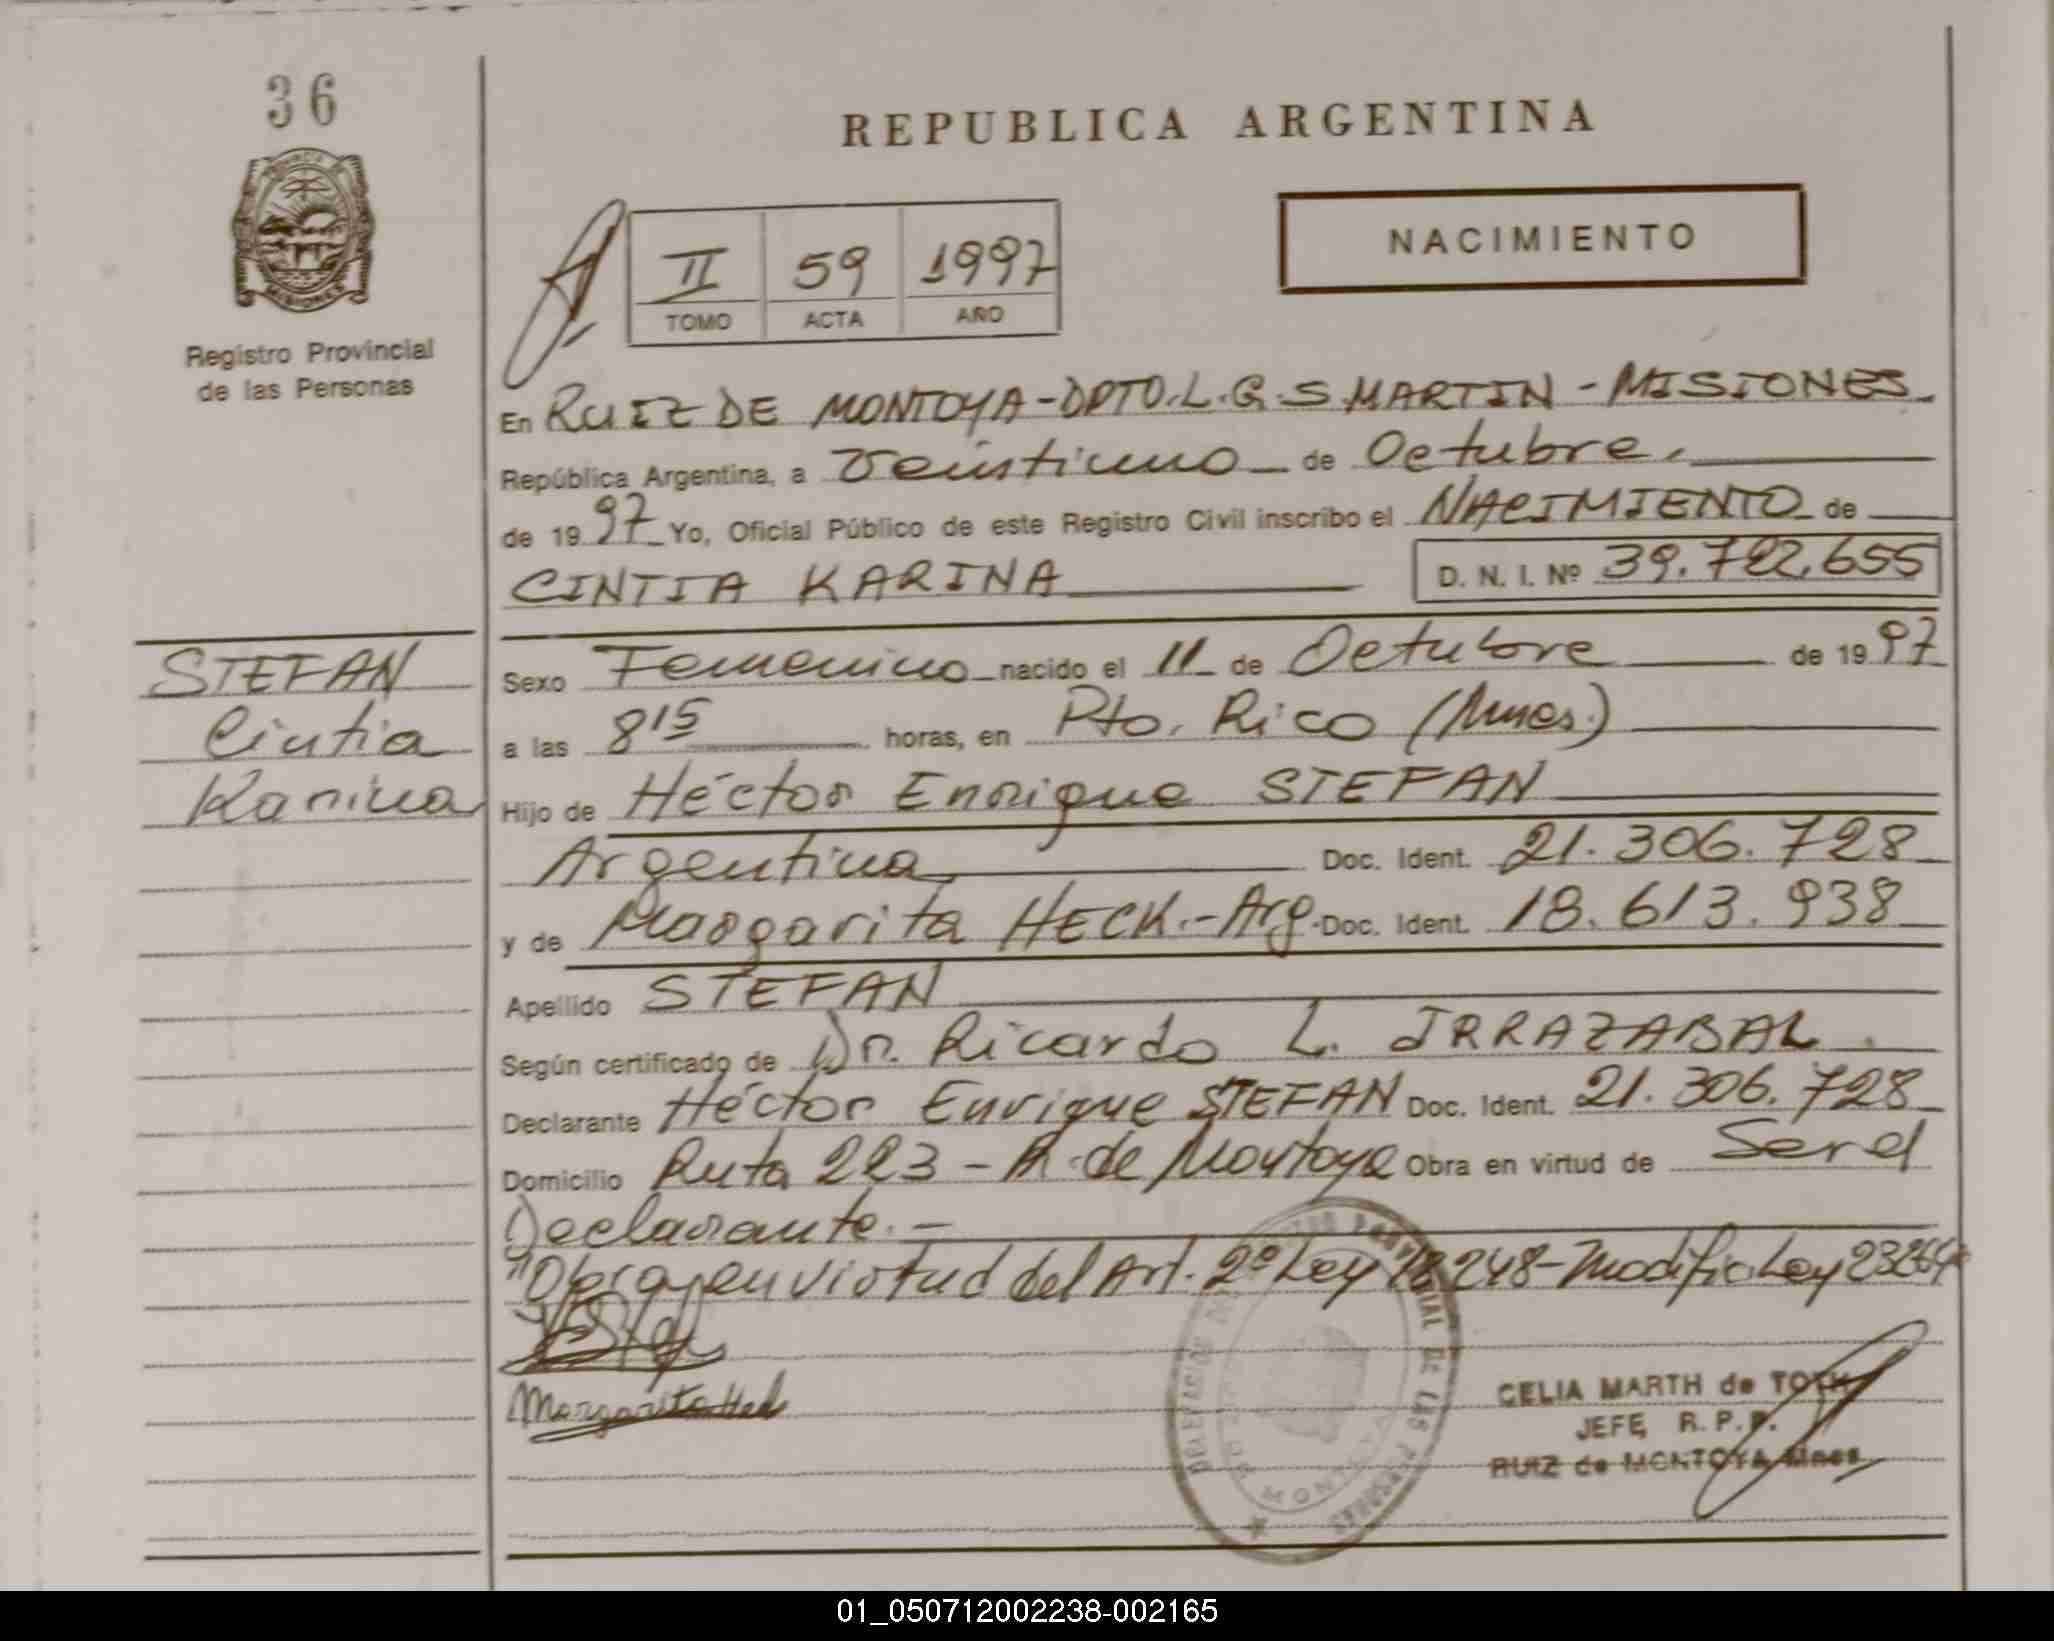 36
REPUBLICA ARGENTINA
NACIMIENTO
II 59 1997
TOMO ACTA AÑO
MISIONES
Registro Provincial
de las Personas
En RUIZ DE MONTOYA-DPTO.L.G.S.MARTIN - MISIONES
República Argentina, a Veintiuno de Octubre.
de 1997 Yo, Oficial Público de este Registro Civil inscribo el NACIMIENTO de
CINTIA KARINA D. N. I. Nº 39.722.655
STEFAN
Cintia
Karina
Sexo Femenino nacido el 11 de Octubre de 1997
a las 8 15 horas, en Pto. Rico (Mnes.)
Hijo de Héctor Enrique STEFAN
Argentina Doc. Ident. 21.306.728
y de Margarita HECK.-Arg. Doc. Ident. 18.613.938
Apellido STEFAN
Según certificado de Dr. Ricardo L. IRRAZABAL.
Declarante Héctor Enrique STEFAN Doc. Ident. 21.306.728
Domicilio Ruta 223 - R. de Montoya Obra en virtud de Ser el
Declarante.-
"Obra en virtud del Art. 2º Ley 18248-Modific Ley 23264
Margarita Heck
DELEGACION REGISTRO PROVINCIAL DE LAS PERSONAS
MONTOYA
CELIA MARTH de TOTH
JEFE R.P.P.
RUIZ de MONTOYA Mnes
01_050712002238-002165